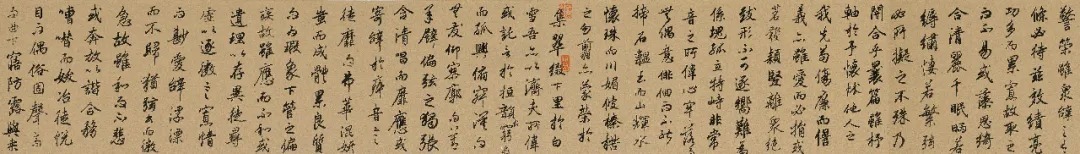 警策雖衆辭之有
條必待兹而效績亮
功多而累寡故取足
而不易或藻思綺
合清麗千眠炳若
縟繡悽若繁絃
必所擬之不殊乃
闇合乎曩篇雖杼
軸於予懷怵他人之
我先苟傷廉而愆
義亦雖愛而必捐或
苕發穎豎離衆絕
致形不可逐響難爲
係塊孤立而特峙非常
音之所緯心牢落而
無偶意徘徊而不能
揥石韞玉而山輝水
懷珠而川媚彼榛楛
之勿翦亦蒙榮於
集翠綴下里於白
雪吾亦以濟夫所偉
或託言於短韻對窮迹
而孤興俯寂寞而
無友仰寥廓而莫承
譬偏絃之獨張
含清唱而靡應或
寄辭於瘁音言
徒靡而弗華混妍
蚩而成體累良質
而爲瑕象下管之偏
疾故雖應而不和或
遺理以存異徒尋
虛以逐微言寡情
而鮮愛辭浮漂
而不歸猶絃么而徽
急故雖和而不悲
或奔放以諧合務
嘈囋而妖冶徒悅
目而偶俗固聲高
而曲下寤防露與桑